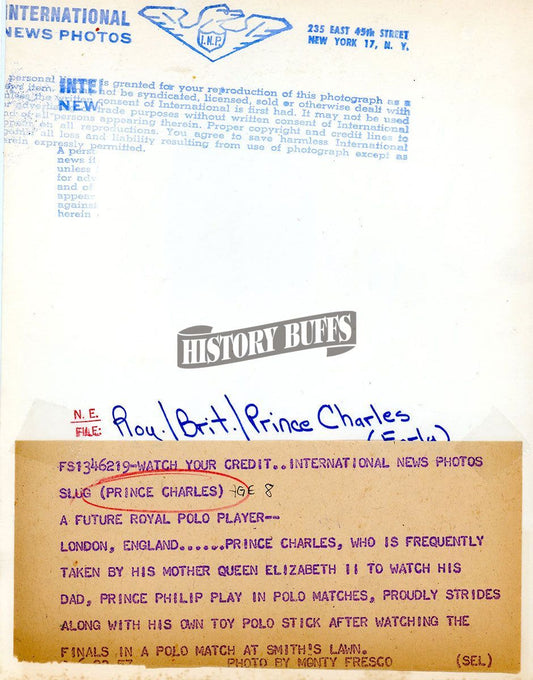 INTERNATIONAL
NEWS PHOTOS
I.N.P.
235 EAST 45th STREET
NEW YORK 17, N. Y.
personal is granted for your reproduction of this photograph as a
news item. not be syndicated, licensed, sold or otherwise dealt with
unless the written consent of International is first had. It may not be used
advertising trade purposes without written consent of International
and of all persons appearing therein. Proper copyright and credit lines to
appear on all reproductions. You agree to save harmless International
against all loss and liability resulting from use of photograph except as
herein expressly permitted.
INTE
NEW
A pers
news it
unless
for adv
and of
appear
against
herein
HISTORY BUFFS
N. E.
FILE:
Roy./Brit./Prince Charles
(Early)
FS1346219-WATCH YOUR CREDIT..INTERNATIONAL NEWS PHOTOS
SLUG (PRINCE CHARLES) AGE 8
A FUTURE ROYAL POLO PLAYER--
LONDON, ENGLAND......PRINCE CHARLES, WHO IS FREQUENTLY
TAKEN BY HIS MOTHER QUEEN ELIZABETH II TO WATCH HIS
DAD, PRINCE PHILIP PLAY IN POLO MATCHES, PROUDLY STRIDES
ALONG WITH HIS OWN TOY POLO STICK AFTER WATCHING THE
FINALS IN A POLO MATCH AT SMITH'S LAWN.
57 PHOTO BY MONTY FRESCO (SEL)